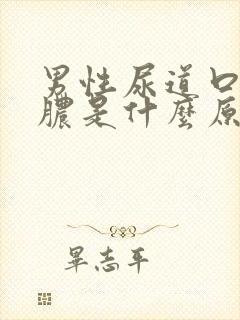 男性尿道口
膿是什麼原
畢志平